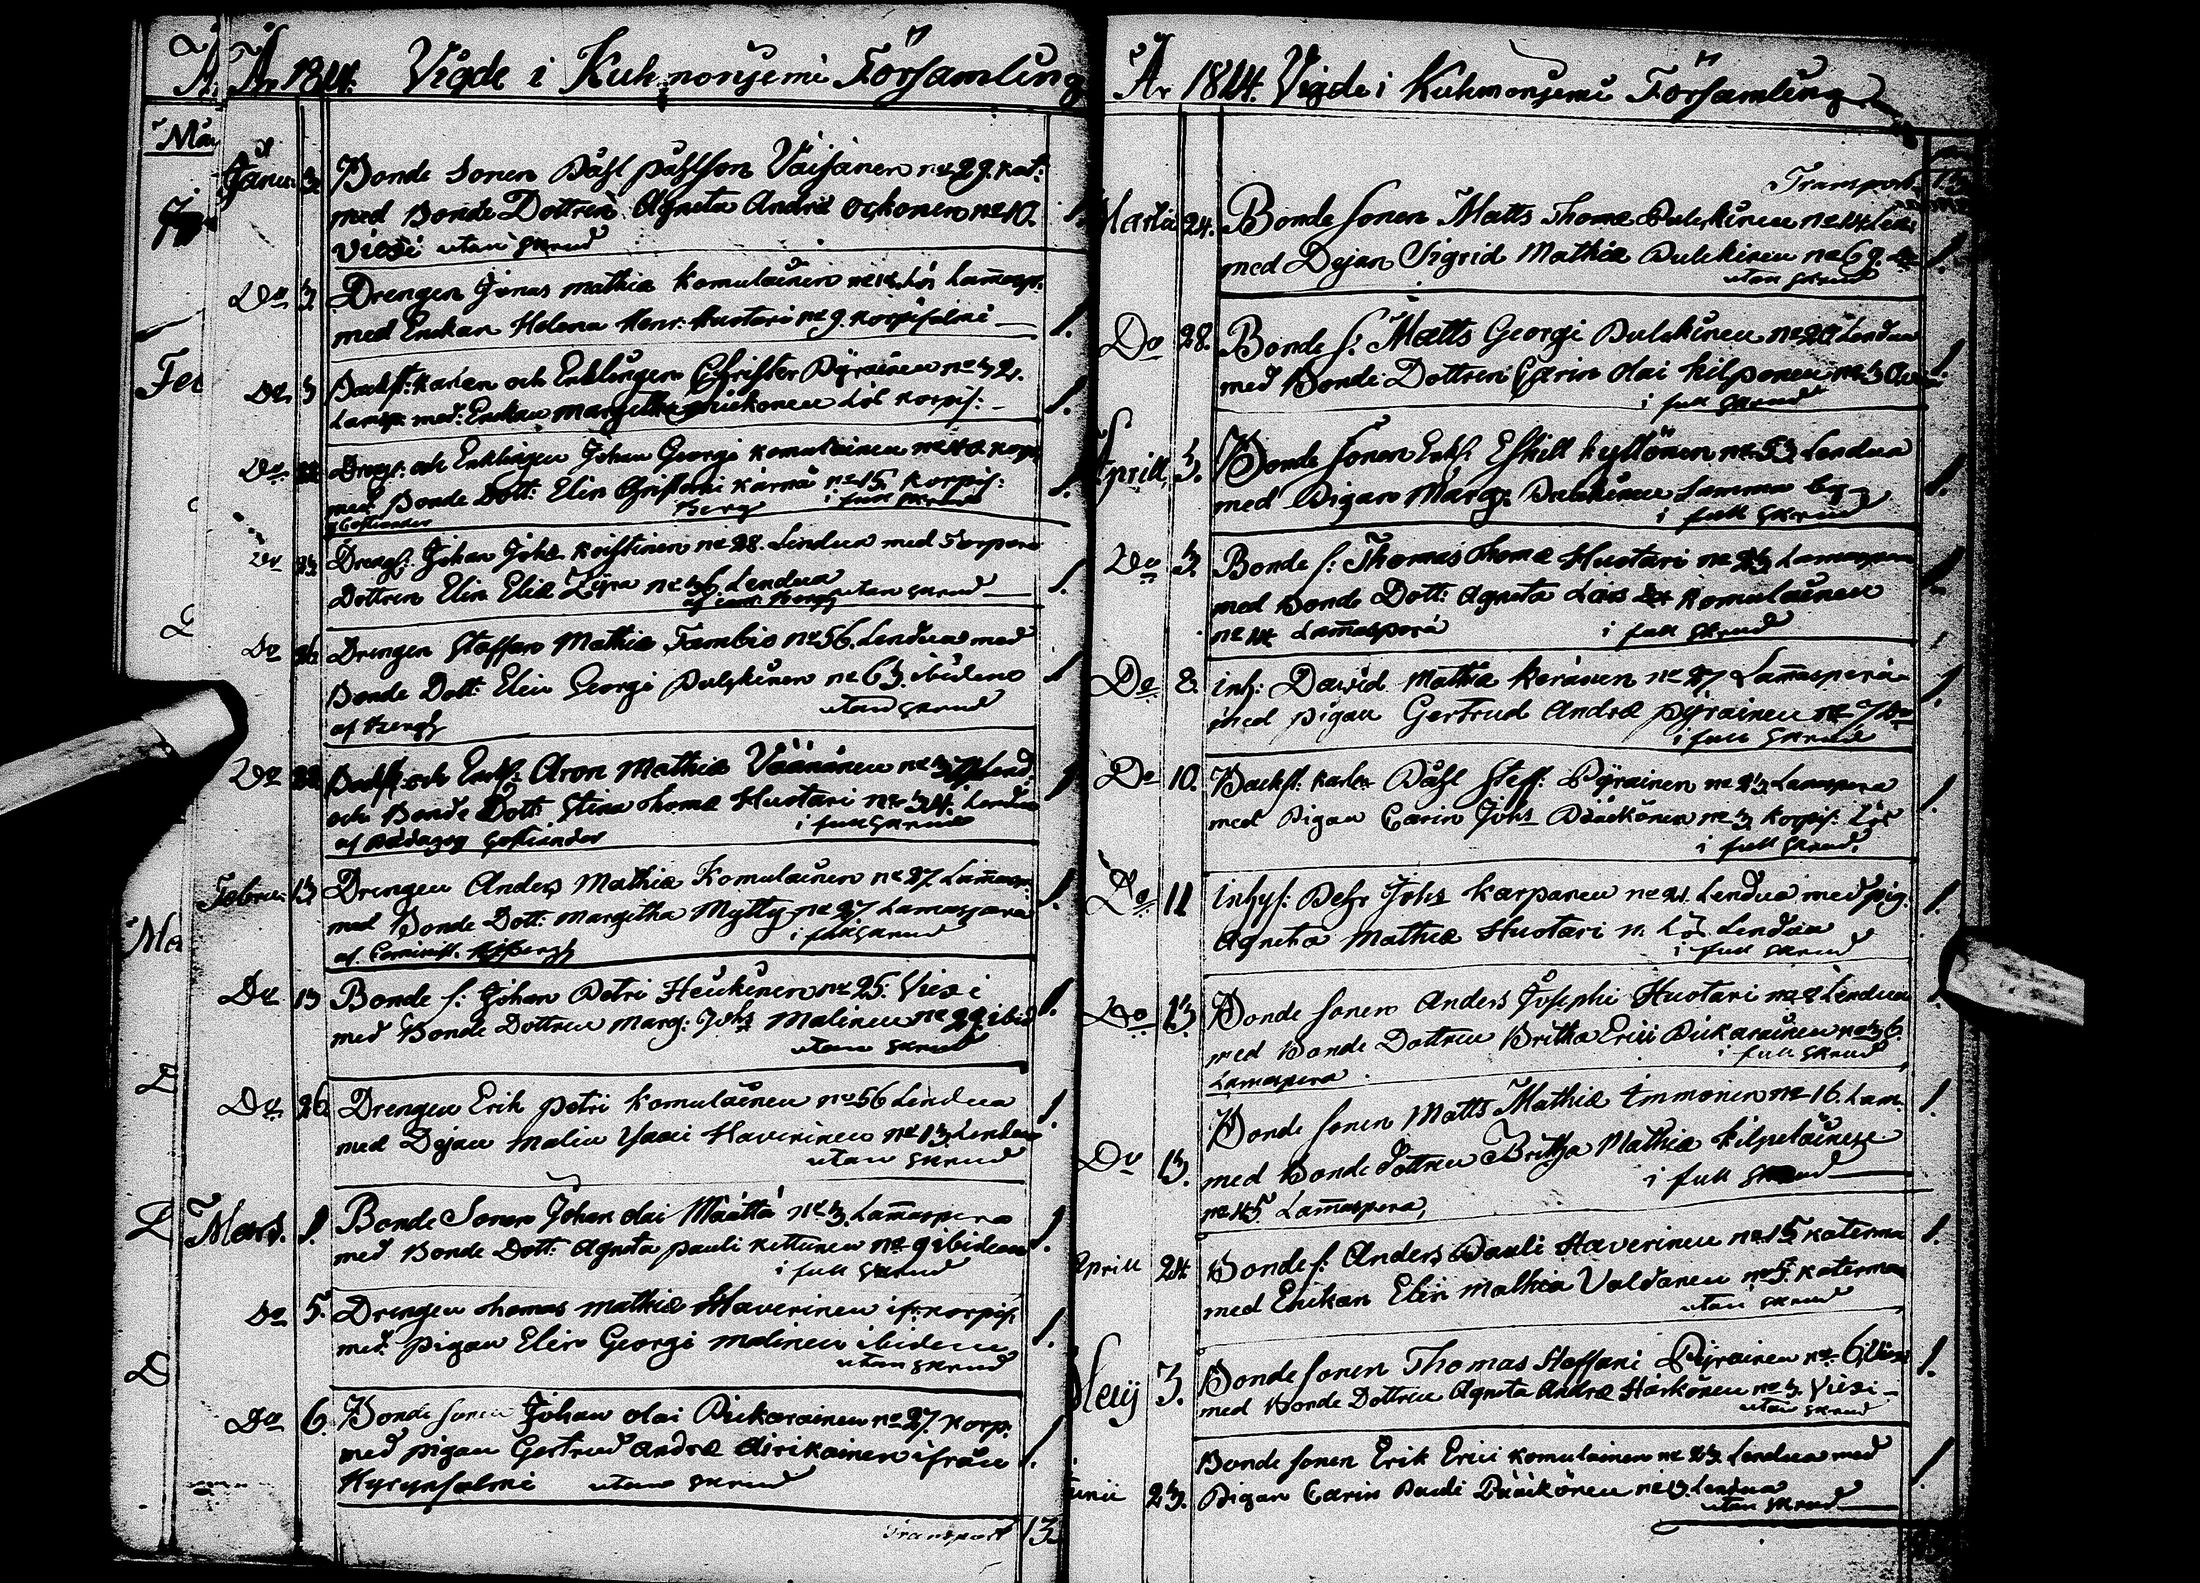 År 1814. Vigde i Kuhmonjemi Församling
Januar 3. Bonde Sonen Påhl Påhlsson Väisänen no 29. Kat:
med Bonde Dottren Agneta Andræ Ockonen no 10. 1.
Viexi utan skrud
Do 3. Drengen Jonas Mathiæ Komulainen no 14 Lös Lamasp:
med Enkan Helena Henr: Huotari no 9. Korpisalmi 1.
Do 3 Backst: Karlen och Enklingen Christer Pyräinen no 32.
Lamsp: med: Enkan Margetha Lös Korpis: 1.
Do Dreng: och Enklingen Johan Georgi Komulainen no Korp
med Bonde Dott: Elin Christerni Kärnä no 15 Korpis: 1.
i full skrud
Do 23. Dreng: Johan Johs Koistinen no 28. Lendua med Torpare
Dottren Elin Eliæ Zijra no 36. Lendua 1.
utan skrud
Do 26. Drengen Staffan Mathiæ Tembio no 56. Lendua med
Bonde Dott: Elin Georgi Pulckinen no 63. ibidem 1
utan skrud
af Bergh
Do Backst: och Enkl: Aron Mathiæ Väänänen no Lend: 1
och Bonde Dott: Stina Thomæ Huotari no 34. Lendua
i full skrud
af Pædagog
Februar: 13. Drengen Anders Mathiæ Komulainen no 27. Lamasp:
med Bonde Dott: Margetha Mytty no 27. Lamaspera 1.
i full skrud
Do 13 Bonde s: Johan Petri Heickinen no 25. Viexi 1.
med Bonde Dottren Marg: Johs Malinen no 29 ibid
utan skrud
Do 26 Drengen Erik Petri Komulainen no 56 Lendua 1.
med Pigan Malin Haverinen no 13 Lendua
utan skrud
Mars. 1. Bonde Sonen Johan Olai Määttä no 3. Lamaspera 1.
med Bonde Dott: Agneta Pauli Kettunen no 9 ibidem
i full skrud
Do 5. Drengen Thomas Mathiæ Haverinen ifr: Korpis: 1.
med pigan Elin Georgi Malinen ibidem
utan skrud
Do 6. Bonde Sonen Johan Olai Pickarainen no 27. Korp: 1.
med pigan Gertrud Andræ Airikainen ifrån
Hyrynsalmi utan skrud
Transport 13
År 1814. Vigde i Kuhmonjemi Församling
Transport 13
Martii 24. Bonde Sonen Matts Thomæ Pulckinen no 14 Lend:
med Pigan Sigrid Mathiæ Pulckinen no 69. Do 1.
utan skrud
Do 28. Bonde s: Matts Georgi Pulckinen no 20 Lendua
med Bonde Dottren Carin Olai Kilponen no 3 1.
i full skrud
Aprill 3. Bonde Sonen Enkl: Eskill Kyllönen no 53 Lendua
med Pigan Marg: Pulckinen Samma by 1.
i full skrud
Do 3. Bonde s: Thomas Thomæ Huotari no 23 Lamaspera 1.
med Bonde Dott: Agneta Lars Do Komulainen
no 14 Lamaspera i full skrud
Do 8. Inh: David Mathiæ Keränen no 27 Lamaspera 1
med pigan Gertrud Andræ Pyräinen no 7 Do
i full skrud
Do 10. Backst: karlen Påhl Steff: Pyräinen no 23 Lamaspera 1.
med Pigan Carin Johs Pääckönen no 3. Korpis: Lös
i full skrud.
Do 11 Inhys: Pehr Johs Karpanen no 21. Lendua med pig. 1.
Agneta Mathiæ Huotari n. Lös. Lendua
i full skrud
Do 13. Bonde Sonen Anders Josephi Huotari no 2 Lendua 1.
med Bonde Dottren Britha Erici Pickarainen no 36.
i full skrud
Lamaspera
Do 13. Bonde Sonen Matts Mathiæ Immonen no 16. Lam. 1.
med Bonde Dottren Britha Mathiæ Kilpeläinen
i full skrud
no 45 Lamaspera,
Aprill 24. Bonde s: Anders Pauli Haverinen no 15 Katerma 1.
med Enkan Elin Mathiæ Valdanen no 5. Katerma
utan skrud
Maij 3. Bonde Sonen Thomas Staffani Pyräinen no 6 Viexi 1.
med Bonde Dottren Agneta Andræ Härkönen no 3. Viexi
utan skrud
Junii 23. Bonde Sonen Erik Erici Komulainen no 23 Lendua med 1.
Pigan Carin Pauli Pääckönen no 13. Lendua
utan skrud